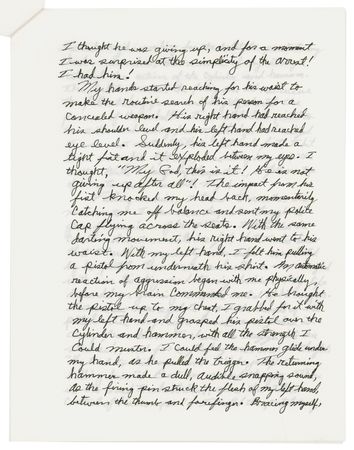 I thought he was giving up, and for a moment
I was surprised at the simplicity of the arrest!
I had him!
My hands started reaching for his waist to
make the routine search of his person for a
concealed weapon. His right hand had reached
his shoulder level and his left hand had reached
eye level. Suddenly, his left hand made a
tight fist and it exploded between my eyes. I
thought, "My God, this is it! He is not
giving up after all"! The impact from his
fist knocked my head back, momentarily
catching me off balance and sent my police
cap flying across the seats. With the same
darting movement, his right hand went to his
waist. With my left hand, I felt him pulling
a pistol from underneath his shirt. An automatic
reaction of aggression began with me physically,
before my brain commanded me. He brought
the pistol up to my chest, I grabbed for it with
my left hand and grasped his pistol over the
cylinder and hammer, with all the strength I
could muster. I could feel the hammer glide under
my hand, as he pulled the trigger. The returning
hammer made a dull, audible snapping sound,
as the firing pin struck the flesh of my left hand,
between the thumb and forefinger. Bracing myself,